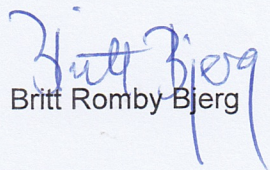 Britt Bjerg
Britt Romby Bjerg